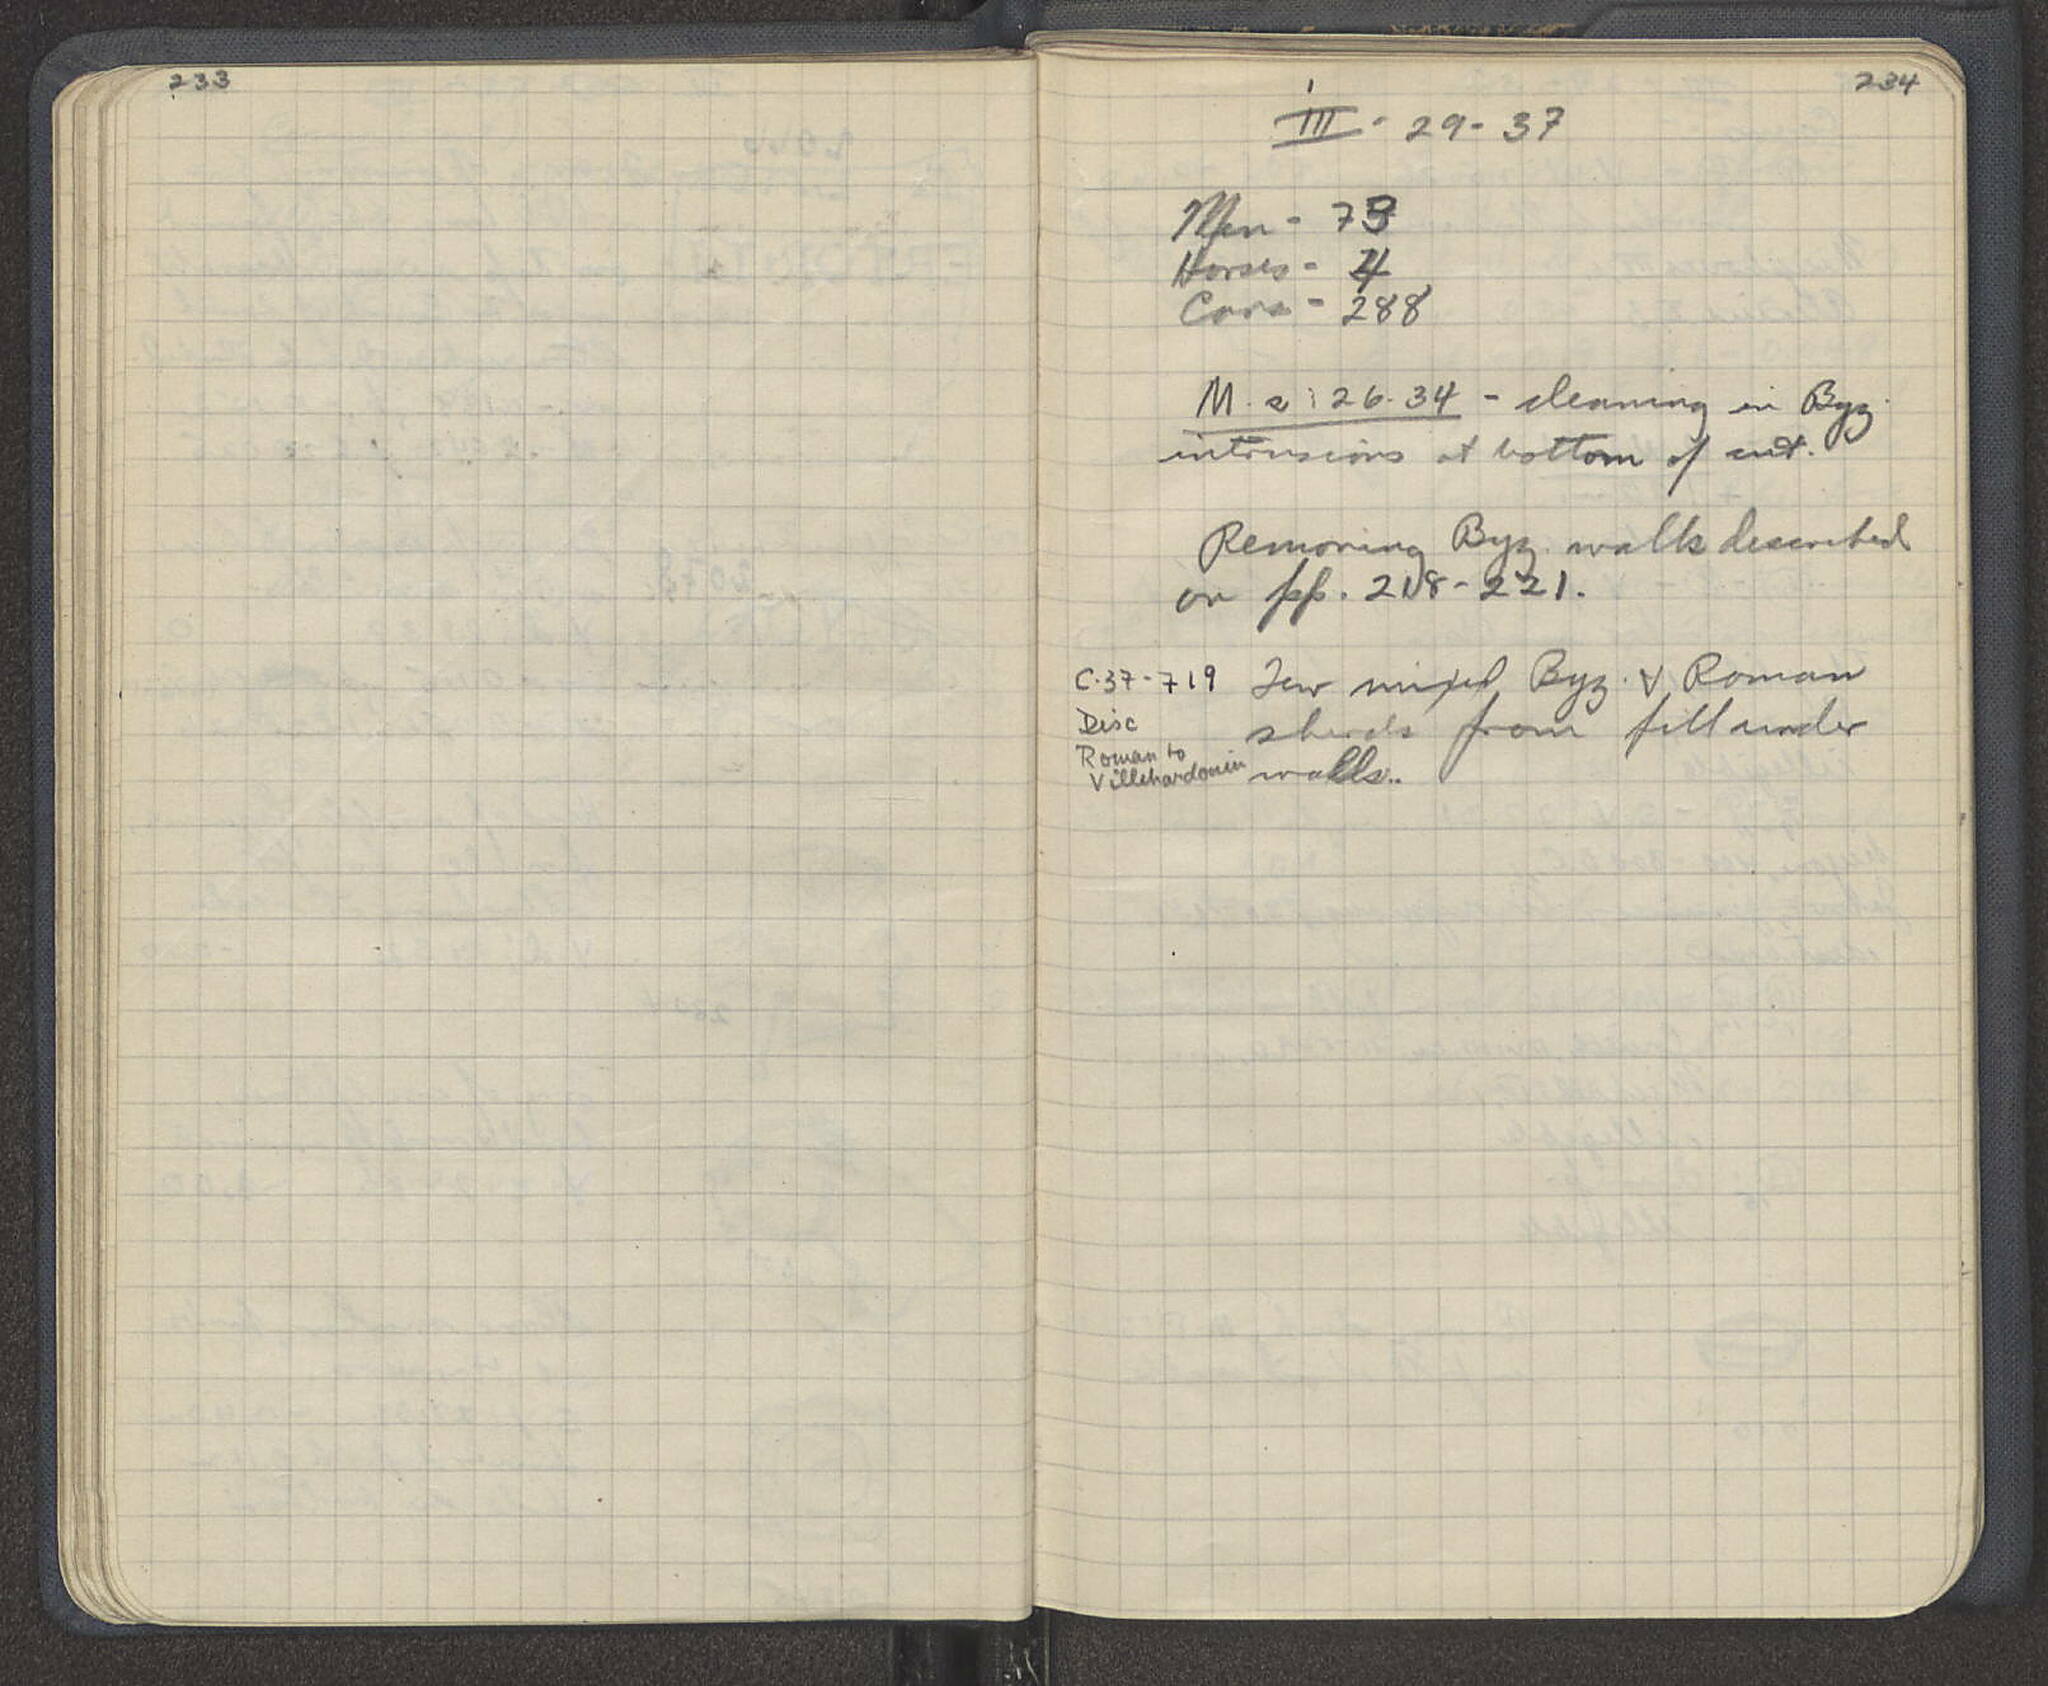 233
234
III - 29 - 37
Men - 73
Horses - 4
Cars - 288
M. a : 26-34 - cleaning in Byz.
intrusions at bottom of cut.
Removing Byz. walls described
on pp. 218 - 221.
C-37-719
Disc
Roman to
Villehardouin
Few mixed Byz. & Roman
sherds from fill under
walls.